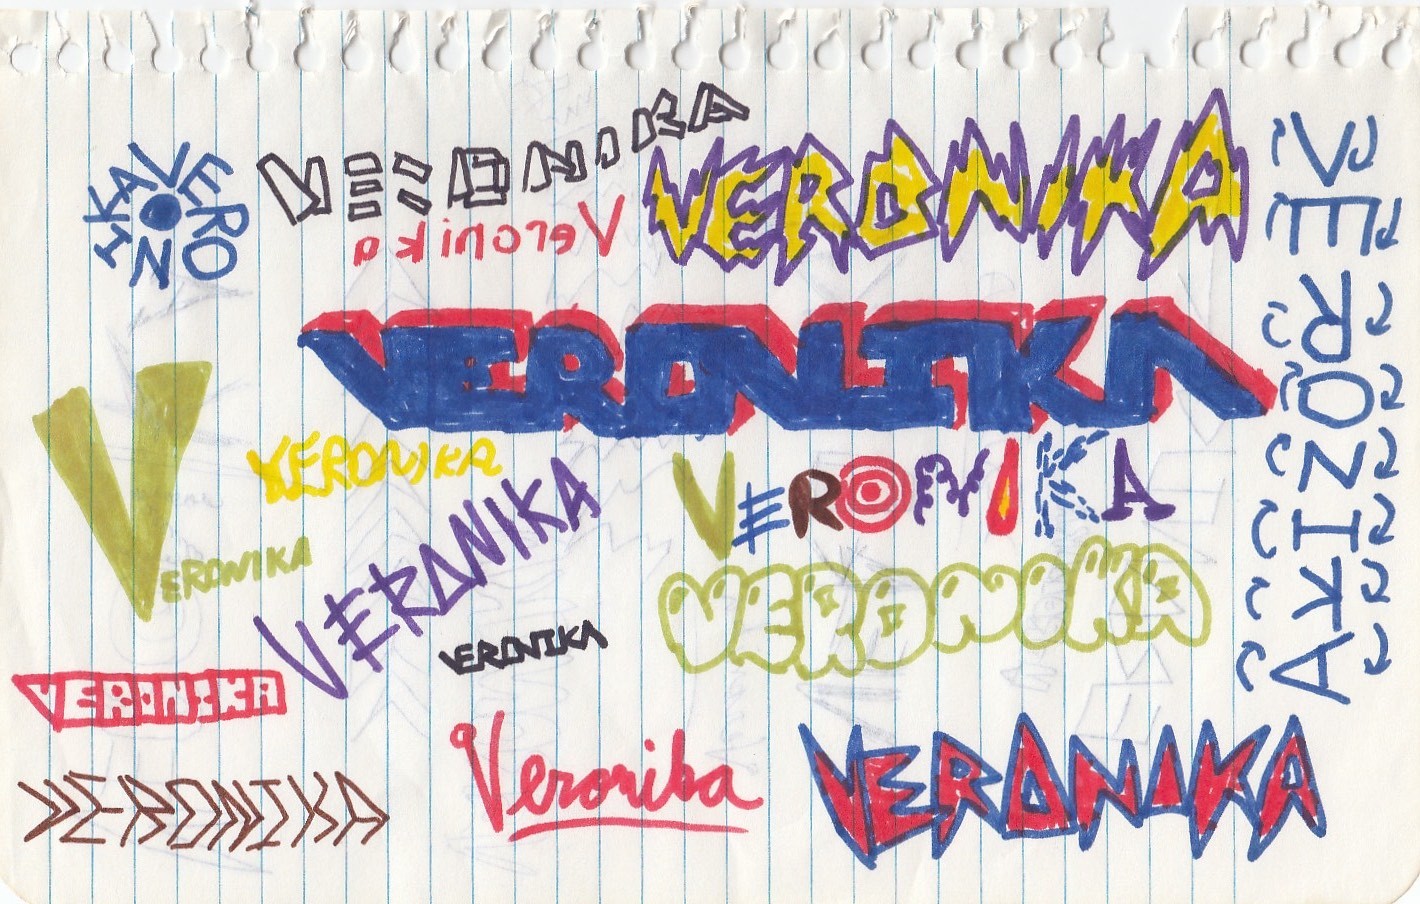 VERONIKA
VERONIKA
Veronika
VERONIKA
VERONIKA
VERONIKA
VERONIKA
VERONIKA
VERONIKA
VERONIKA
VERONIKA
VERONIKA
VERONIKA
VERONIKA
VERONIKA
Veronika
VERONIKA